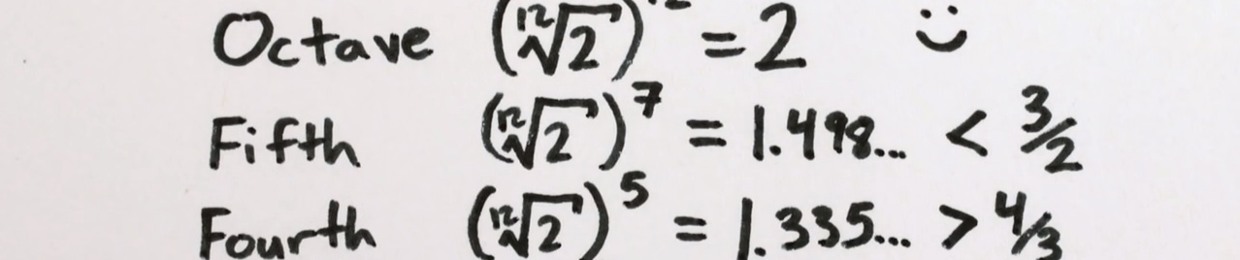 Octave (¹²√2)¹² = 2 :)
Fifth (¹²√2)⁷ = 1.498... < 3/2
Fourth (¹²√2)⁵ = 1.335... > 4/3